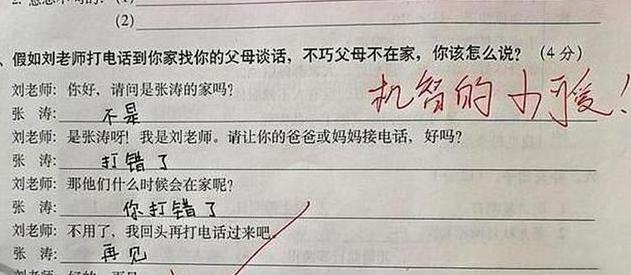 (2)
、假如刘老师打电话到你家找你的父母谈话，不巧父母不在家，你该怎么说？（4分）
刘老师：你好，请问是张涛的家吗？
机智的小可爱！
张 涛：不是
刘老师：是张涛呀！我是刘老师。请让你的爸爸或妈妈接电话，好吗？
张 涛：打错了
刘老师：那他们什么时候会在家呢？
张 涛：你打错了
刘老师：不用了，我回头再打电话过来吧。
张 涛：再见